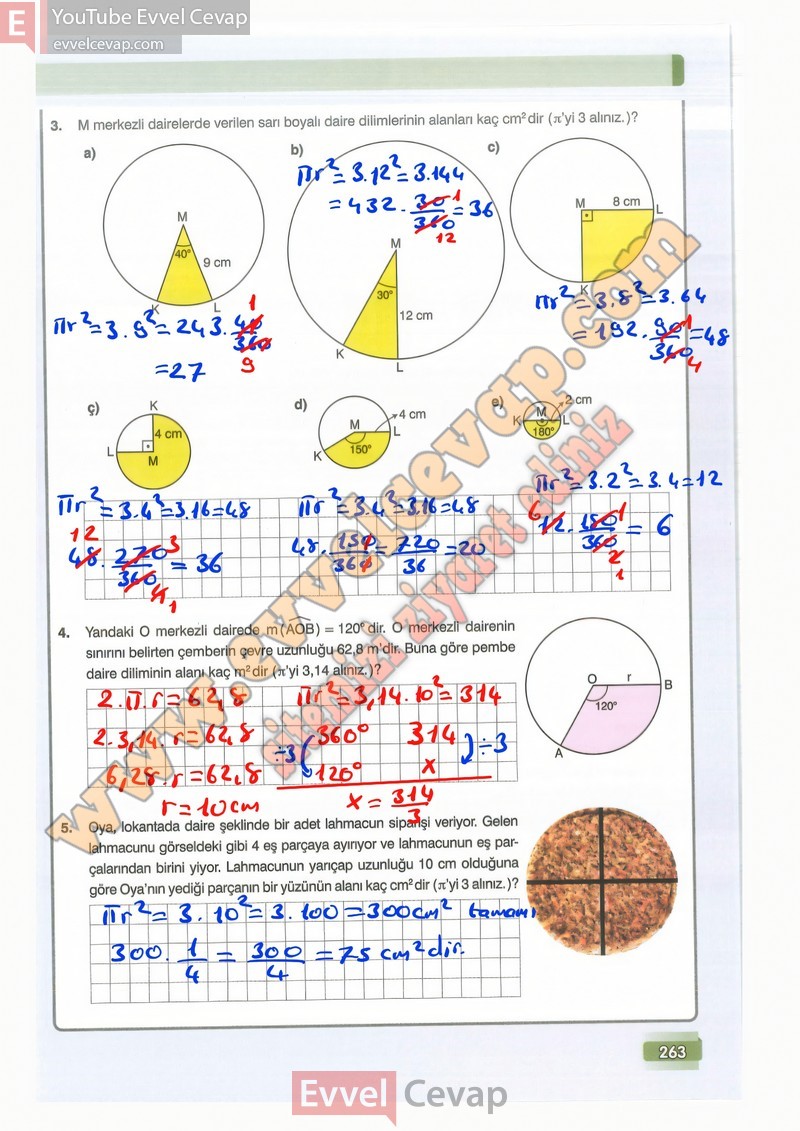 E YouTube Evvel Cevap
evvelcevap.com
3. M merkezli dairelerde verilen sarı boyalı daire dilimlerinin alanları kaç cm² dir (π'yi 3 alınız.)?
a)
M
40°
9 cm
K
L
πr² = 3.9² = 243 . 40/360 1 9
= 27
b)
πr² = 3.12² = 3.144
= 432 . 30/360 = 36 1 12
M
30°
12 cm
K
L
c)
M
8 cm
L
K
πr² = 3.8² = 3.64
= 192 . 90/360 = 48 1 4
ç)
K
4 cm
L
M
πr² = 3.4² = 3.16 = 48
12 3
48 . 270/360 = 36
4 1
d)
4 cm
M
L
150°
K
πr² = 3.4² = 3.16 = 48
48 . 150/360 = 720/36 = 20
e)
2 cm
K M L
180°
πr² = 3.2² = 3.4 = 12
6 12 . 180/360 = 6 1 2 1
4. Yandaki O merkezli dairede m(AOB) = 120° dir. O merkezli dairenin
sınırını belirten çemberin çevre uzunluğu 62,8 m'dir. Buna göre pembe
daire diliminin alanı kaç m² dir (π'yi 3,14 alınız.)?
O r B
120°
A
2.π.r = 62,8
2.3,14.r = 62,8
6,28.r = 62,8
r = 10 cm
πr² = 3,14.10² = 314
360° 314
÷3 ÷3
120° x
x = 314/3
5. Oya, lokantada daire şeklinde bir adet lahmacun siparişi veriyor. Gelen
lahmacunu görseldeki gibi 4 eş parçaya ayırıyor ve lahmacunun eş par-
çalarından birini yiyor. Lahmacunun yarıçap uzunluğu 10 cm olduğuna
göre Oya'nın yediği parçanın bir yüzünün alanı kaç cm² dir (π'yi 3 alınız.)?
πr² = 3.10² = 3.100 = 300 cm² tamamı
300 . 1/4 = 300/4 = 75 cm² dir.
www.evvelcevap.com
sitemizi ziyaret ediniz
263
Evvel Cevap